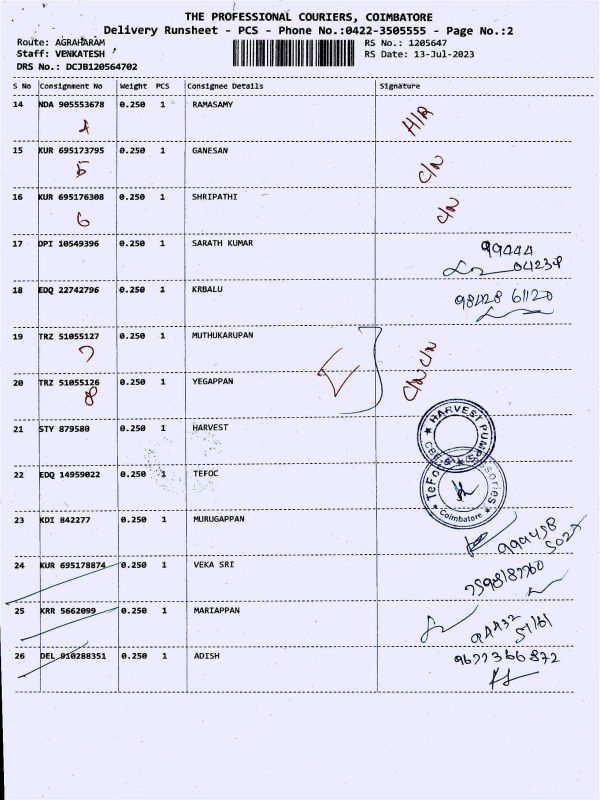 THE PROFESSIONAL COURIERS, COIMBATORE
Delivery Runsheet - PCS - Phone No.:0422-3505555 - Page No.:2
Route: AGRAHARAM RS No.: 1205647
Staff: VENKATESH RS Date: 13-Jul-2023
DRS No.: DCJB120564702
S No Consignment No Weight PCS Consignee Details Signature
14 NDA 905553678 0.250 1 RAMASAMY
4
15 KUR 695173795 0.250 1 GANESAN C/N
5
16 KUR 695176308 0.250 1 SHRIPATHI C/N
6
17 DPI 10549396 0.250 1 SARATH KUMAR 99444
04234
18 EDQ 22742796 0.250 1 KRBALU 98428 61120
19 TRZ 51055127 0.250 1 MUTHUKARUPAN C/N
7
20 TRZ 51055126 0.250 1 YEGAPPAN C/N
8
21 STY 879580 0.250 1 HARVEST HARVEST PUMPS
22 EDQ 14959022 0.250 1 TEFOC TeFoc Coimbatore
23 KDI 842277 0.250 1 MURUGAPPAN
24 KUR 695178874 0.250 1 VEKA SRI
25 KRR 5662099 0.250 1 MARIAPPAN
26 DEL 810288351 0.250 1 ADISH